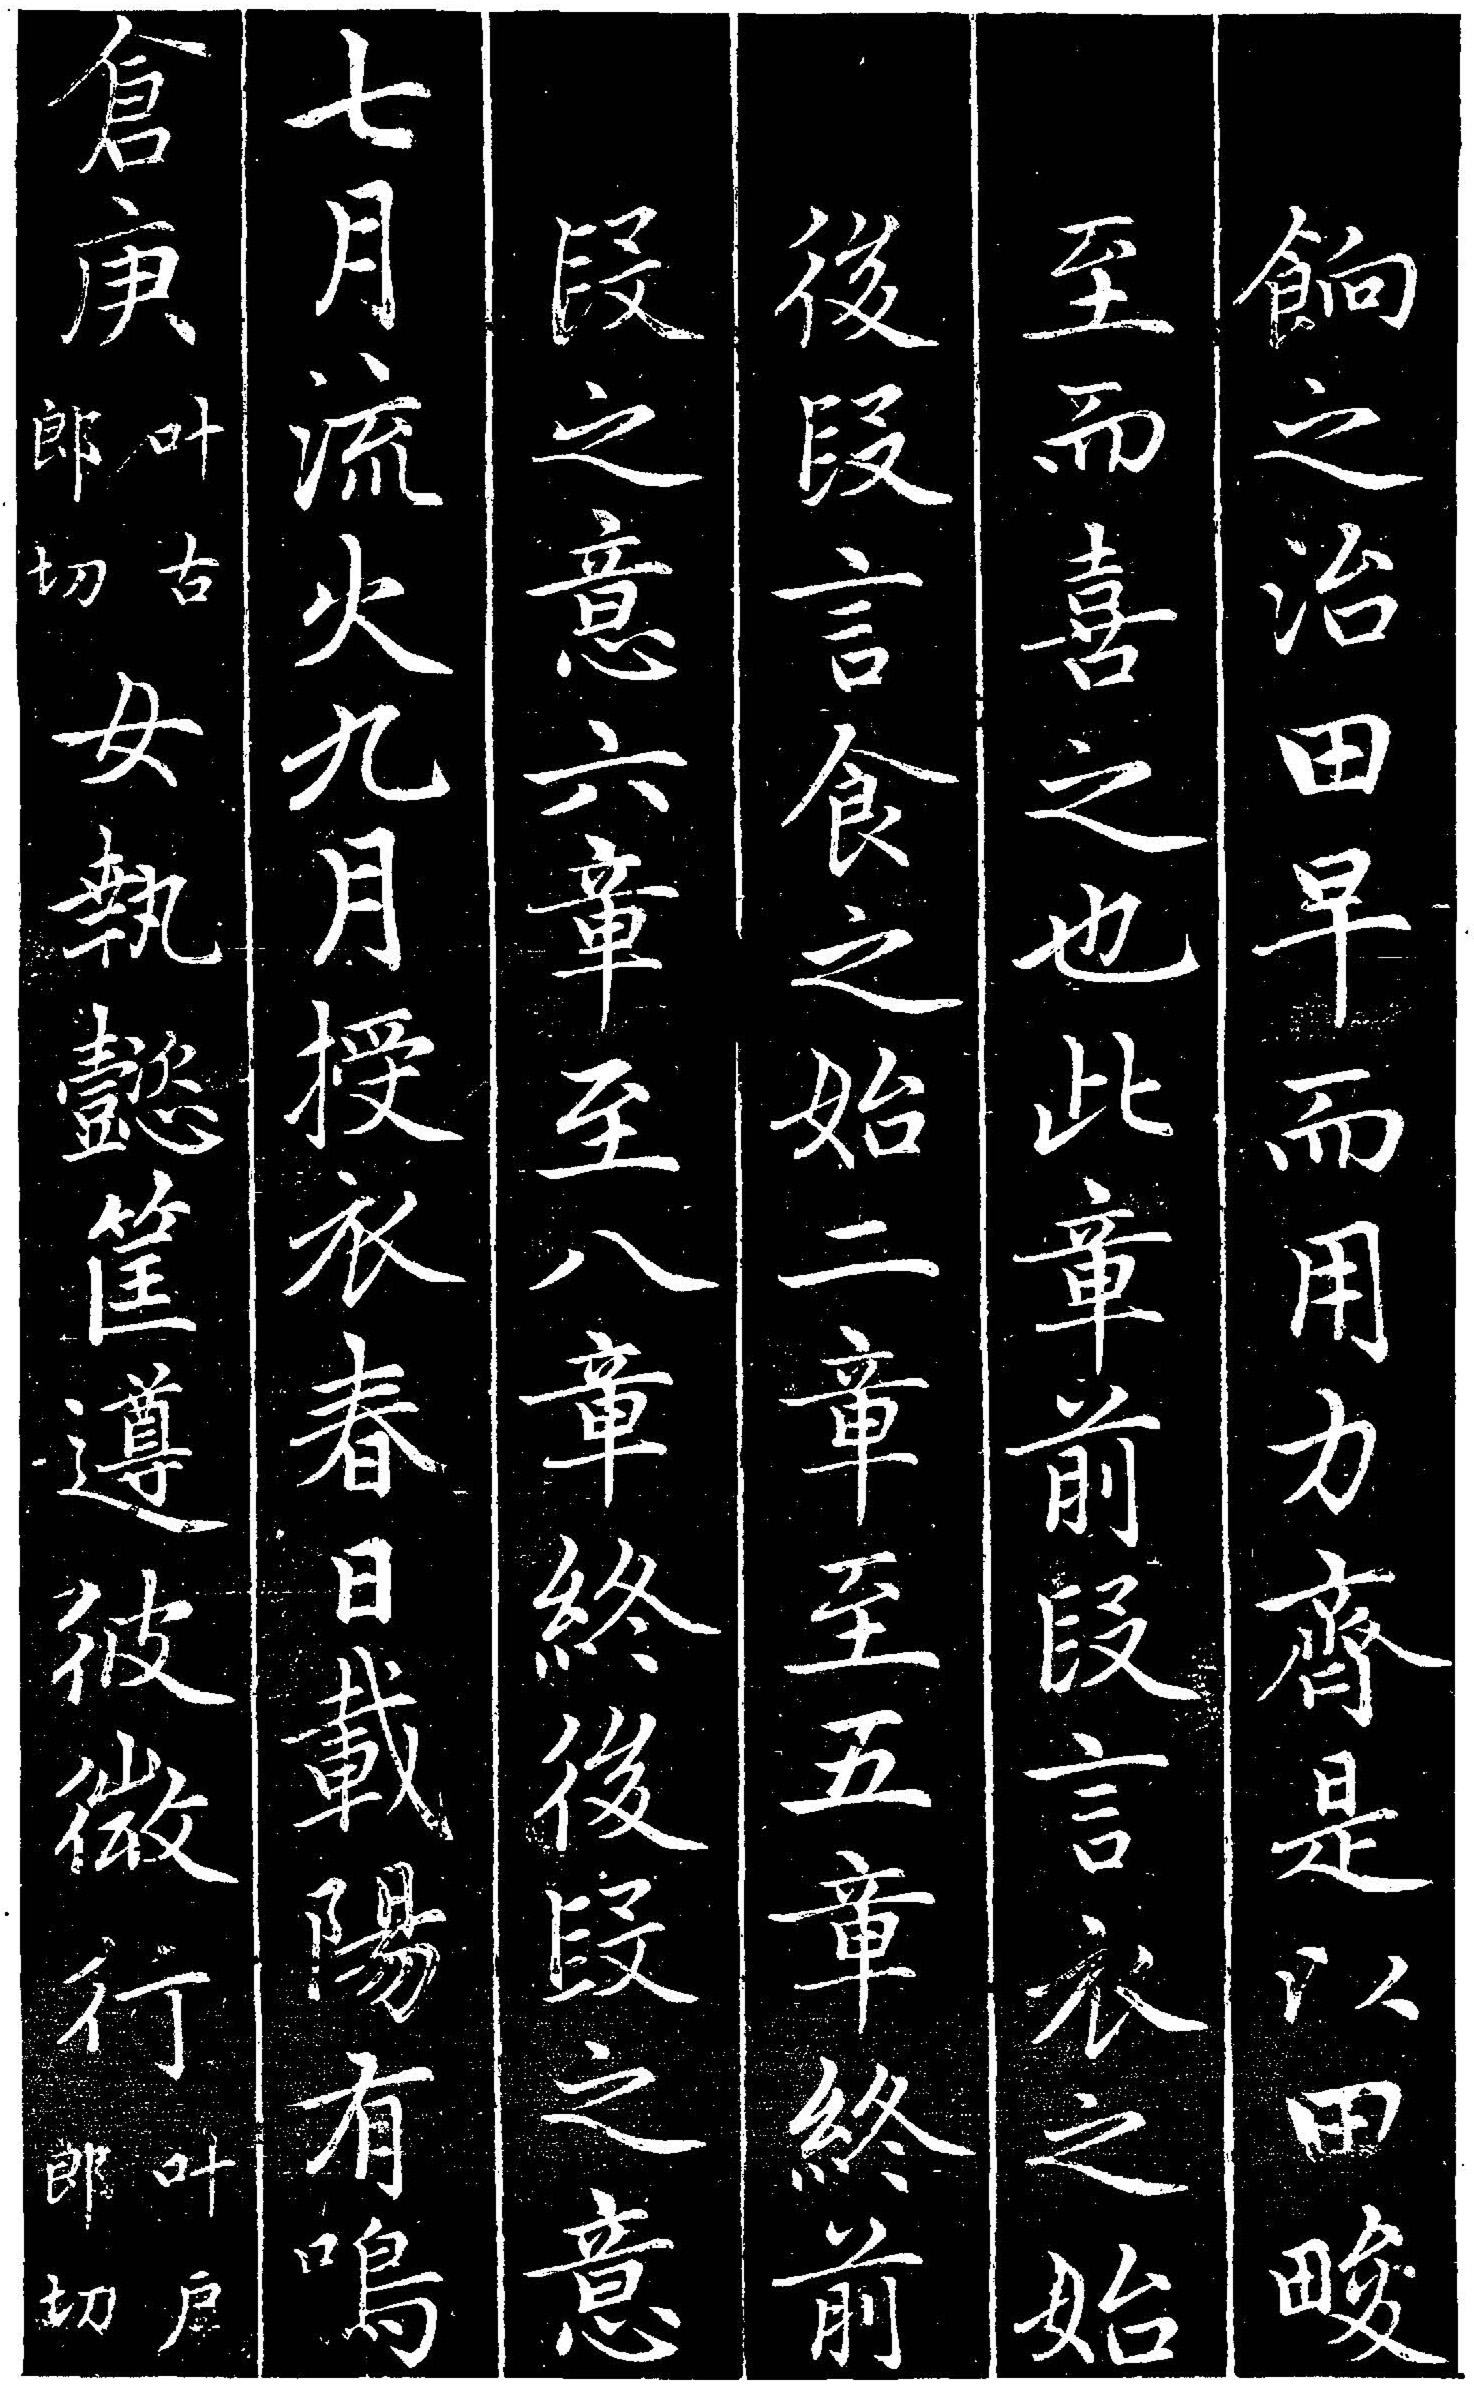 餉之治田早而用力齊是以田畯
至而喜之也此章前段言衣之始
後段言食之始二章至五章終前
段之意六章至八章終後段之意
七月流火九月授衣春日載陽有鳴
倉庚叶古郎切女執懿筐遵彼微行叶戶郎切